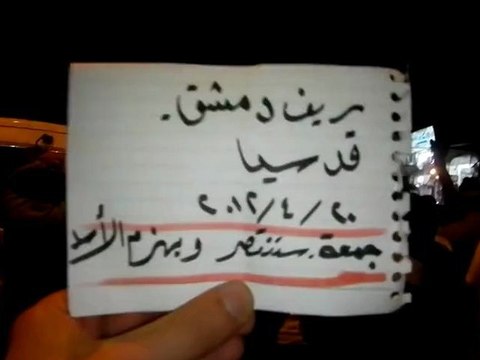 ريف دمشق.
قدسيا
٢٠١٢/٤/٢٠
جمعة. سننتصر ويهزم الأسد